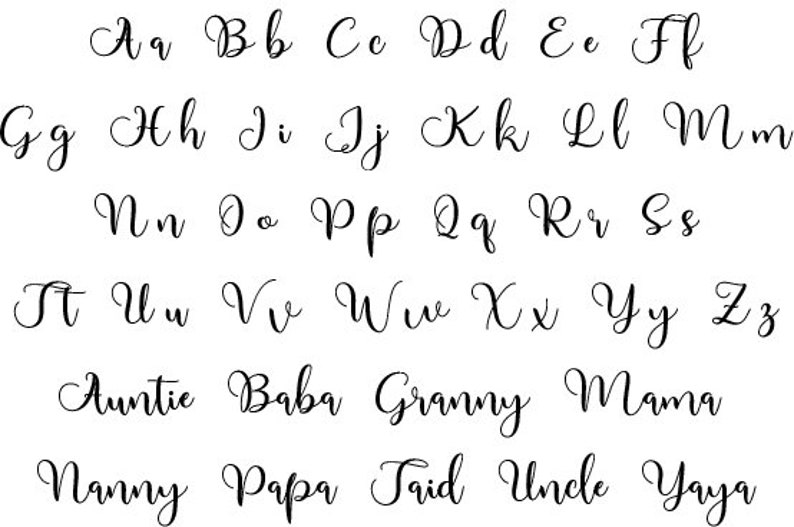 Aa Bb Cc Dd Ee Ff
Gg Hh Ii Jj Kk Ll Mm
Nn Oo Pp Qq Rr Ss
Tt Uu Vv Ww Xx Yy Zz
Auntie Baba Granny Mama
Nanny Papa Taid Uncle Yaya